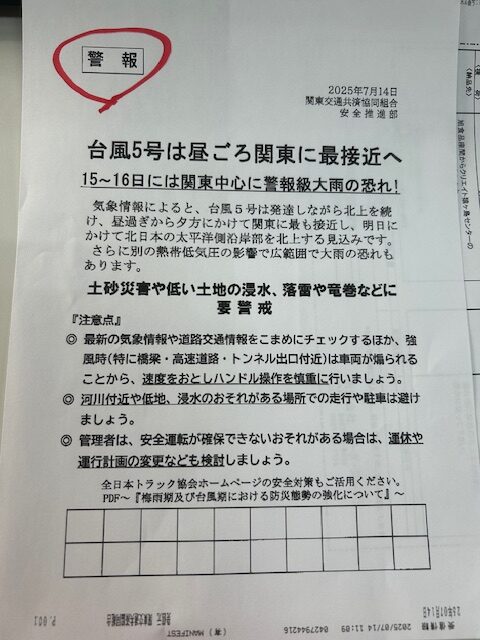 警報
2025年7月14日
関東交通共済協同組合
安全推進部
台風5号は昼ごろ関東に最接近へ
15~16日には関東中心に警報級大雨の恐れ!
気象情報によると、台風5号は発達しながら北上を続
け、昼過ぎから夕方にかけて関東に最も接近し、明日に
かけて北日本の太平洋側沿岸部を北上する見込みです。
さらに別の熱帯低気圧の影響で広範囲で大雨の恐れも
あります。
土砂災害や低い土地の浸水、落雷や竜巻などに
要警戒
『注意点』
◎ 最新の気象情報や道路交通情報をこまめにチェックするほか、強
風時(特に橋梁・高速道路・トンネル出口付近)は車両が煽られる
ことから、速度をおとしハンドル操作を慎重に行いましょう。
◎ 河川付近や低地、浸水のおそれがある場所での走行や駐車は避け
ましょう。
◎ 管理者は、安全運転が確保できないおそれがある場合は、運休や
運行計画の変更なども検討しましょう。
全日本トラック協会ホームページの安全対策もご活用ください。
PDF~『梅雨期及び台風期における防災態勢の強化について』~
受信情報 2025/07/14 11:09 0427944216 (有) MANIFEST
P.001
(納品先)